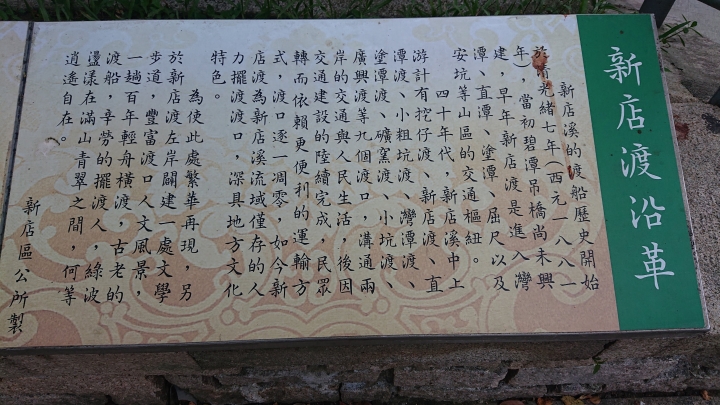 新店渡沿革
新店溪的渡船歷史開始
於清光緒七年(西元一八八一
年)，當初碧潭吊橋尚未興
建，早年新店渡是進入灣
潭、直潭、塗潭、屈尺以及
安坑等山區的交通樞紐。
四十年代，新店溪中上
游計有挖仔渡、新店渡、直
潭渡、小粗坑渡、灣潭渡、
塗潭渡、礦窯渡、小坑渡、
廣興渡等九個渡口，溝通兩
岸的交通與人民生活，後因
交通建設的陸續完成，民眾
轉而依賴更便利的運輸方
式，渡口逐一凋零，如今新
店渡為新店溪流域僅存的人
力擺渡渡口，深具地方文化
特色。
為使此處繁華再現，另
於新店渡左岸闢建一處文學
步道，豐富渡口人文風景，
一趟百年輕舟橫渡，古老的
渡船，辛勞的擺渡人，綠波
盪漾在滿山青翠之間，何等
逍遙自在。
新店區公所製